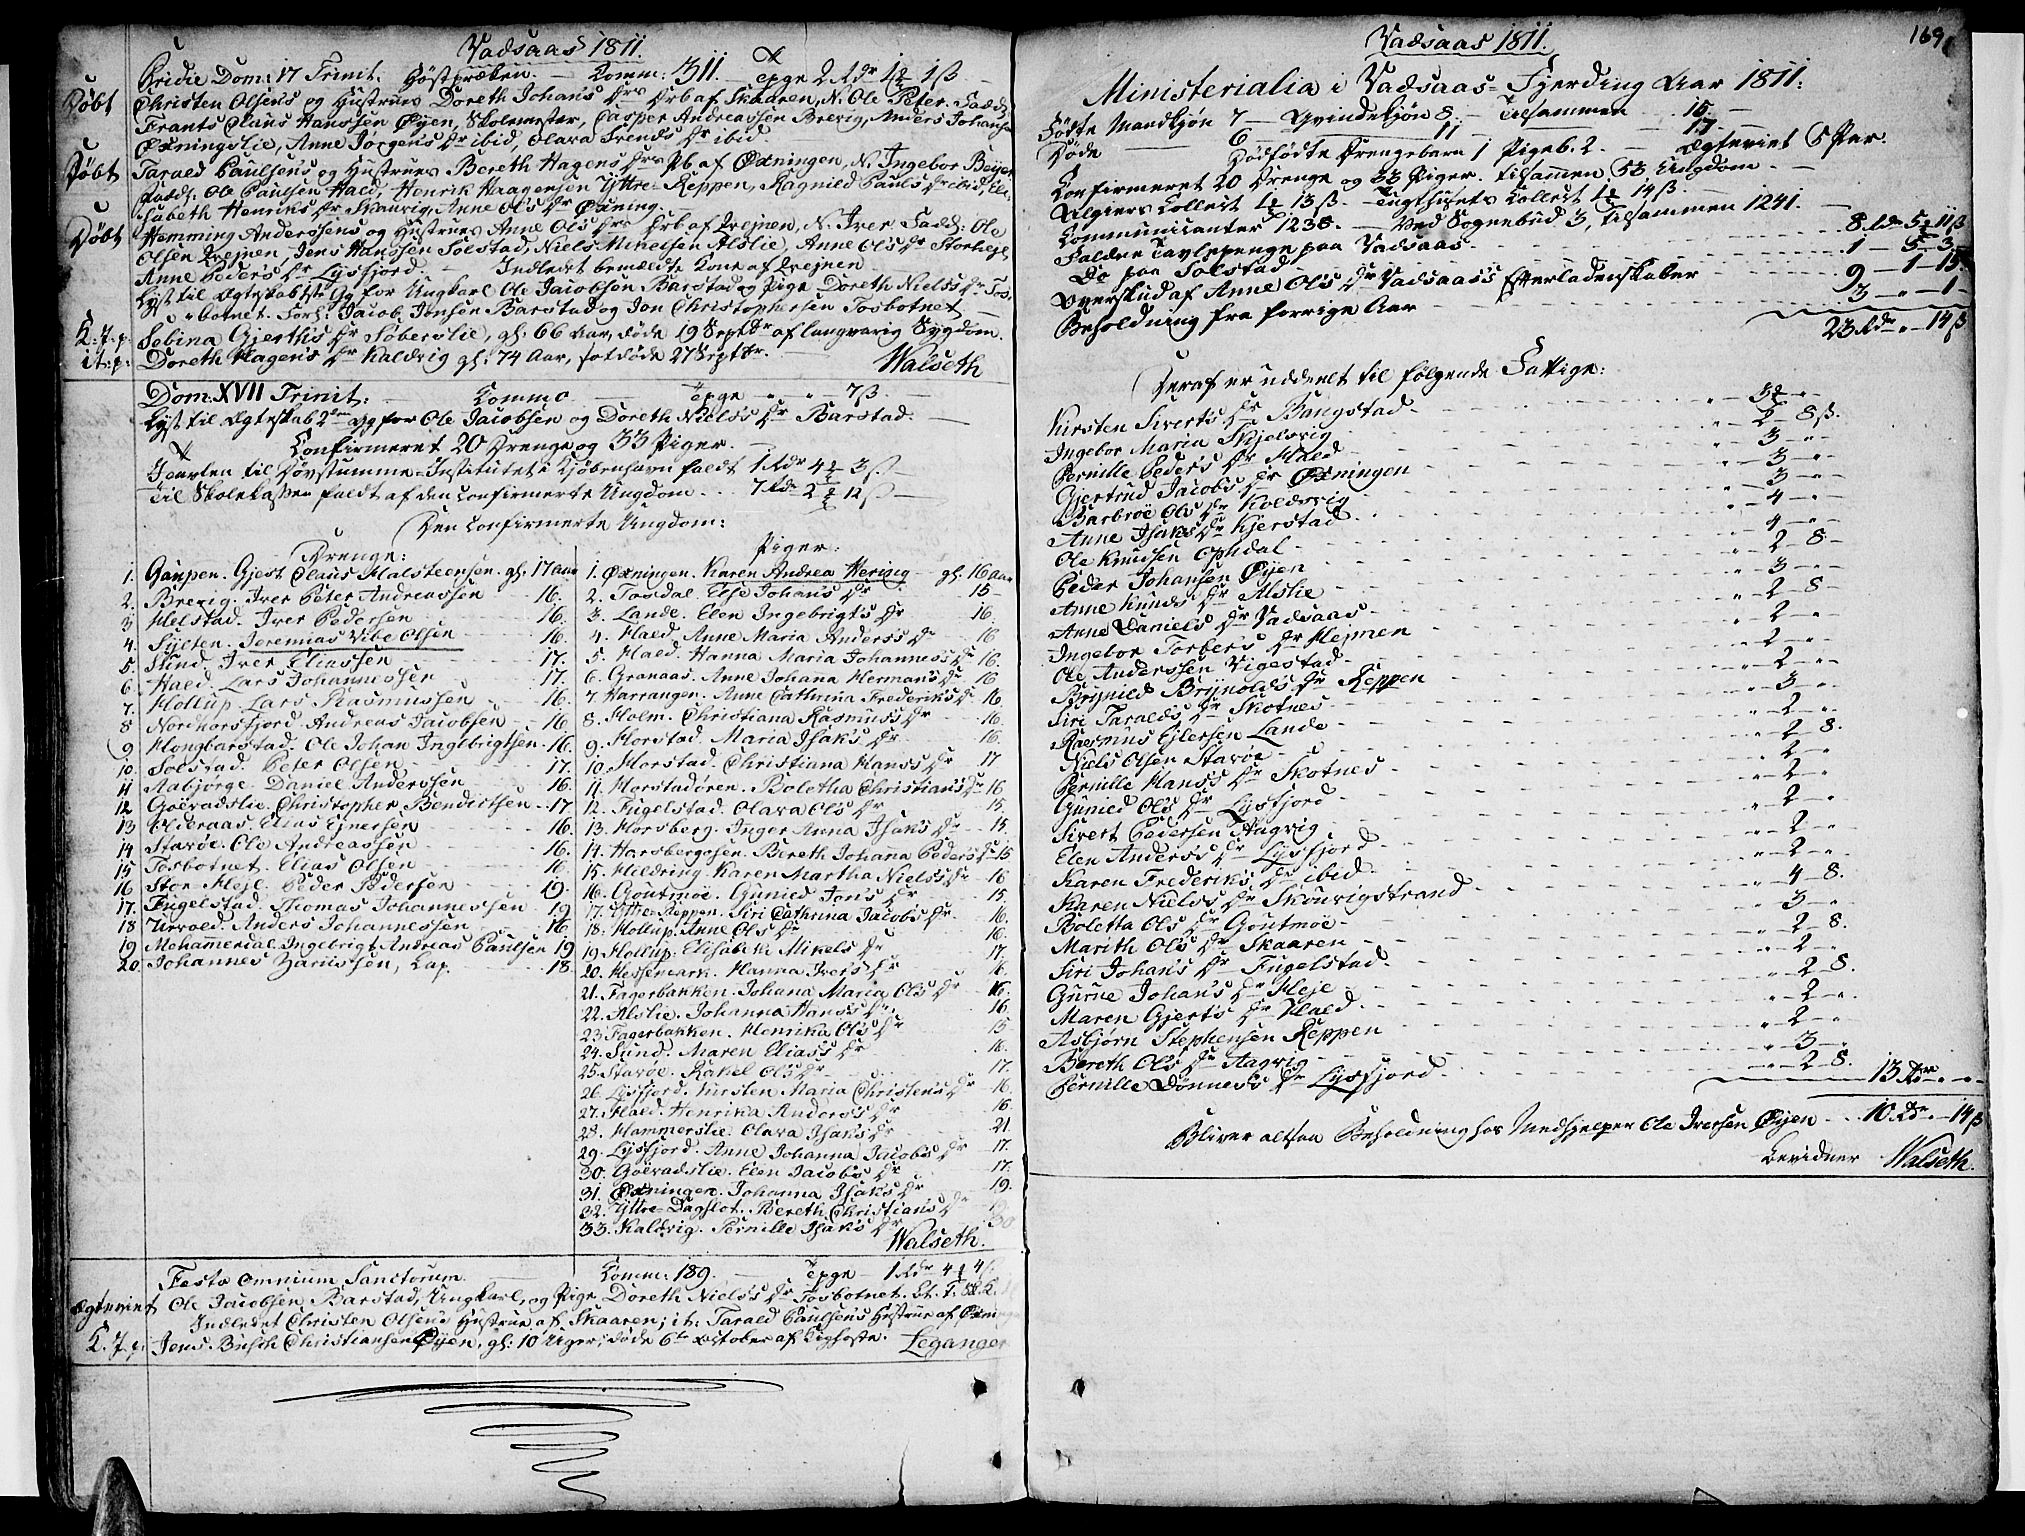 Vadsaas 1811.
Pridie Dom: 17 Trinit. Höstpræken. — Comm: 311. — Tpge 2 Rdr
Döbt Christen Olsens og Hustrues Doreth Johans Drb af Skaaren, N. Ole Peter. Fadd:
Frants Claus Hanssen Öyen, Skolemester, Casper Andreassen Brevig, Anders Johansen
Öxningslie, Anne Jörgens Dr ibid, Olava Svends Dr ibid
Döbt Tarald Paulsens og Hustrues Bereth Hagens Pb af Öxningen, N. Ingebor
Fadd: Ole Paulsen Hald, Henrik Haagensen Yttre-Reppen, Ragnild Pauls Dr ibid, Eli-
sabeth Henriks Dr Skauvig, Anne Ols Dr Öxning.
Döbt Hemming Anderssens og Hustrues Anne Ols Drb af N. Iver. Fadd: Ole
Olsen Jens Hanssen Solstad, Niels Mikelsen Alslie, Anne Ols Dr Storheje,
Anne Peders Dr Lysfjord. Indledet bemældte Kone af
Lyst til Ægteskab 1ste Gg for Ungkarl Ole Jacobsen Barstad og Pige Doreth Niels's Dr Tos-
botnet. Forl: Jacob Jonsen Barstad og Jon Christophersen Tosbotnet
K: J: p: Sebina Gjerth's Dr Söberslie, gl: 66 Aar, döde 19 Septbr af langvarig Sygdom.
it: p: Doreth Hagens Dr Kaldvig gl: 74 Aar, sotdöde 27 Septbr. Walseth
Dom: XVII Trinit: Comm 0 Tpge 7 ß.
Lyst til Ægteskab 2den Gg for Ole Jacobsen og Doreth Niels's Dr Barstad.
Confirmeret 20 Drenge og 33 Piger.
I Tavlen til Dövstumme-Institutet i Kjöbenhavn faldt 1 Rdr 4 3 ß
Til Skolekassen faldt af den confirmerte Ungdom. 7 Rdr 2 12 ß
Den confirmerte Ungdom:
Drenge:
1. Gaupen. Gjest Claus Halsteensen. gl: 17 Aar
2. Brevig. Iver Peter Andreassen 16.
3 Helstad. Iver Pedersen 16.
4. Sylten. Jeremias Vibe Olsen 16.
5 Sund. Iver Eliassen 17.
6. Hald. Lars Johannessen 17.
7. Hollup. Lars Rasmussen 16.
8 Nordhorsfjord. Andreas Jacobsen 16
9 Hongbarstad. Ole Johan Ingebrigtsen 16.
10. Solstad. Peter Olsen 17.
11 Aabjörge. Daniel Anderssen 16.
12 Goëvadslie. Christopher Bendictsen 17
13 Olderaas. Elias Ejnersen 16.
14 Stavöe. Ole Andreassen 16.
15 Tosbotnet. Elias Olsen 16
16 Stor-Heje. Peder Pedersen 19.
17. Fugelstad. Thomas Johannessen 19
18 Urvold. Anders Johannessen 16.
19 Mohammerdal. Ingebrigt Andreas Paulsen 19
20. Johannes Zariissen, Lap. 18
Piger:
1. Öxningen. Karen Andrea Hering gl: 16 Aar
2. Tosdal. Else Johans Dr 15
3. Lande. Elen Ingebrigts Dr 16.
4. Hald. Anne Maria Anders's Dr 16
5. Hald. Hanna Maria Johannes's Dr 16.
6. Granaas. Anne Johana Herman's Dr 16
7 Harrangen. Anne Cathrina Frederik's Dr 16
8. Holm. Christiana Rasmus's Dr 16.
9. Horstad. Maria Isak's Dr 16.
10. Horstad. Christiana Hans's Dr 17
11. Horstadören. Boletha Christians Dr 16
12. Fugelstad. Olava Ols Dr 15.
13. Horsberg. Inger Anna Isak's Dr 15.
14. Horsbergosen. Bereth Johanna Peders Dr 15
15. Hildring. Karen Martha Niels's Dr 16
16. Goutmöe. Gunild Jon's Dr 15
17. Yttre-Reppen. Siri Cathrina Jacob's Dr. 16.
18. Hollup. Anne Ols Dr 16.
19. Hollup. Elisabeth Mikels Dr 17.
20. Hessemark. Hanna Ivers Dr 16.
21. Fagerbakken. Johana Maria Ols Dr 16.
22. Alslie. Johanna Hans's Dr. 16.
23 Fagerbakken. Henrika Ols Dr 15
24. Sund. Maren Elias's Dr 16.
25. Stavöe. Rakel Ols Dr 17.
26. Lysfjord. Kirsten Maria Christens Dr 16.
27. Hald. Henrika Anders's Dr 16.
28. Hammerslie. Olava Isak's Dr 21
29. Lysfjord. Anne Johanna Jacobs Dr 17.
30. Goëvadslie. Elen Jacobs Dr 17.
31. Öxningen. Johanna Isak's Dr 19.
32. Yttre-Dagslot. Bereth Christians Dr
33. Kaldvig. Pernille Isak's Dr 30
Walseth.
Festo Omnium Sanctorum. Comm: 189. Tpge 1 Rdr 4 4 ß.
Ægteviet Ole Jacobsen Barstad, Ungkarl, og Pige Doreth Niels's Dr Tosbotnet.
Indledet Christen Olsens Hustrue af Skaaren; it: Tarald Paulsens Hustrue af
K. J. p: Jens Busch Christiansen Öyen, gl: 10 Uger, döde 6te October af Kighoste. Leganger
169.
Vadsaas 1811.
Ministerialia i Vadsaas-Fjerding Aar 1811:
Födte Mandkjön 7 — Qvindekjön 8. — Tilsammen 15.
Döde 6 11 17
Dödfödte Drengebarn 1 Pigeb. 2. Ægteviet 5 Par.
Confirmeret 20 Drenge og 33 Piger. Tilsammen 53 Ungdom
Algiers Collect 13 ß. Tugthusets Collect 14 ß.
Communicanter 1238. — Ved Sognebud 3, Tilsammen 1241.
Faldne Tavlepenge paa Vadsaas 8 Rdr 5 11 ß
Do paa Solstad 1 — 5 — 3
Overskud af Anne Ols Dr Vadsaas's Efterladenskaber 9 — 1 — 15
Beholdning fra forrige Aar 3 — „ — 1
23 Rdr „ — 14 ß
Deraf er uddeelt til fölgende Fattige:
Kirsten Siverts Dr Bangstad 3
Ingebor Maria Skjelsvig 2 — 8 ß.
Pernille Peders Dr Hald 3 — „
Gjertrud Jacob's Dr Öxningen 3 — „
Barbröe Ols Dr Koldvig 3 — „
Anne Isaks Dr Kjerstad 4 — „
Ole Knudsen Ophdal 4 — „
Peder Johansen Öyen 2 — 8
Anne Knuds Dr Alslie 3 — „
Anne Daniels Dr Vadsaas 2 — 8
Ingebor Torbers Dr Hejmen 2 — „
Ole Anderssen Vigestad 2 — „
Brynild Brynolds Dr Reppen 2 — „
Siri Taralds Dr Skotnes 3 — „
Rasmus Ejlersen Lande 2 — „
Niels Olsen Stavöe 2 — 8.
Pernille Hans's Dr Skotnes 2 — „
Gunild Ols Dr Lysfjord 2 — „
Sivert Pedersen Aagvig 2 — „
Elen Anders's Dr Lysfjord 2 — „
Karen Frederiks Dr ibid 2 — „
Karen Niels's Dr Skouvigstrand 4 — 8.
Boletta Ols Dr Goutmöe 3 — „
Marith Ols Dr Skaaren 2 — 8.
Siri Johans Dr Fugelstad 2 — „
Gurne Johans Dr Heje 2 — 8.
Maren Gjerts Dr Hald 2 — „
Asbjörn Stephensen Reppen 2 — „
Bereth Ols Dr Aagvig 3 — „
Pernille Dönnes's Dr Lysfjord 2 — 8.
13 Rdr „ „
Bliver altsaa Beholdning hos Medhjelper Ole Iversen Öyen 10 Rdr „ — 14 ß
Bevidner Walseth.